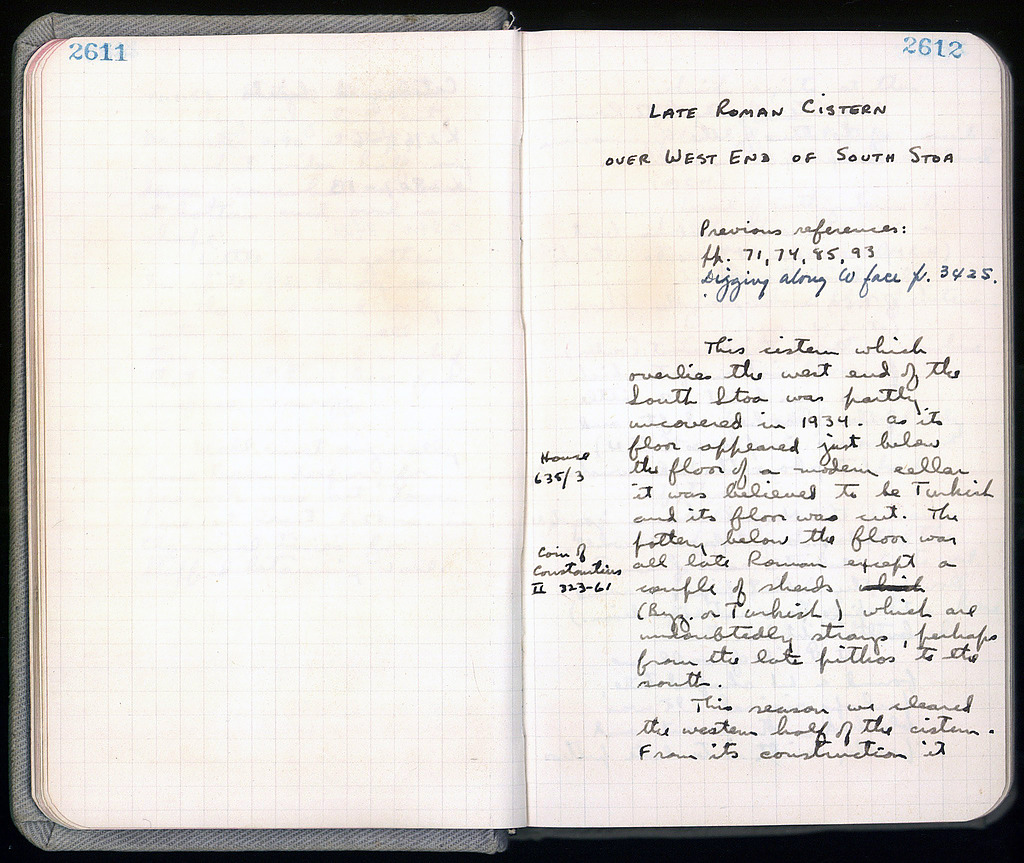 2611
2612
LATE ROMAN CISTERN
OVER WEST END OF SOUTH STOA
Previous references:
pp. 71, 74, 85, 93
Digging along W face p. 3425.
This cistern which
overlies the west end of the
South Stoa was partly
uncovered in 1934. As its
floor appeared just below
House
635/3
the floor of a modern cellar
it was believed to be Turkish
and its floor was cut. The
pottery below the floor was
Coin of
Constantius
II 323-61
all late Roman except a
couple of sherds which
(Byz. or Turkish) which are
undoubtedly strays, perhaps
from the late pithos to the
south.
This season we cleared
the western half of the cistern.
From its construction it